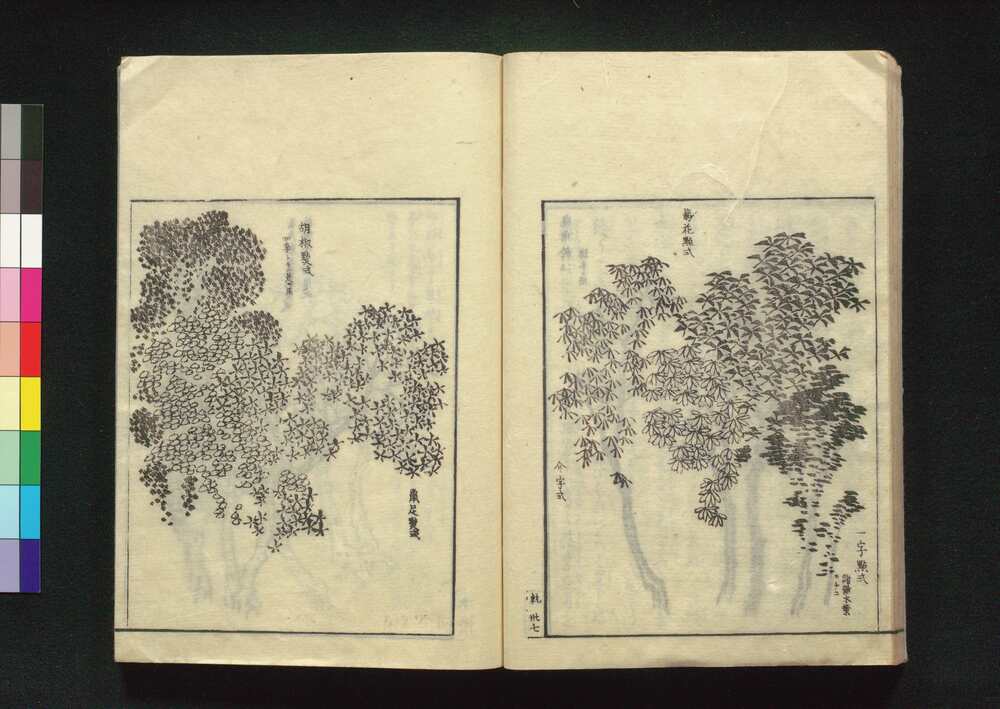 菊花點式
介字式
一字點式
諸做木葉
乾 卅七
胡椒點式
鼠足點式